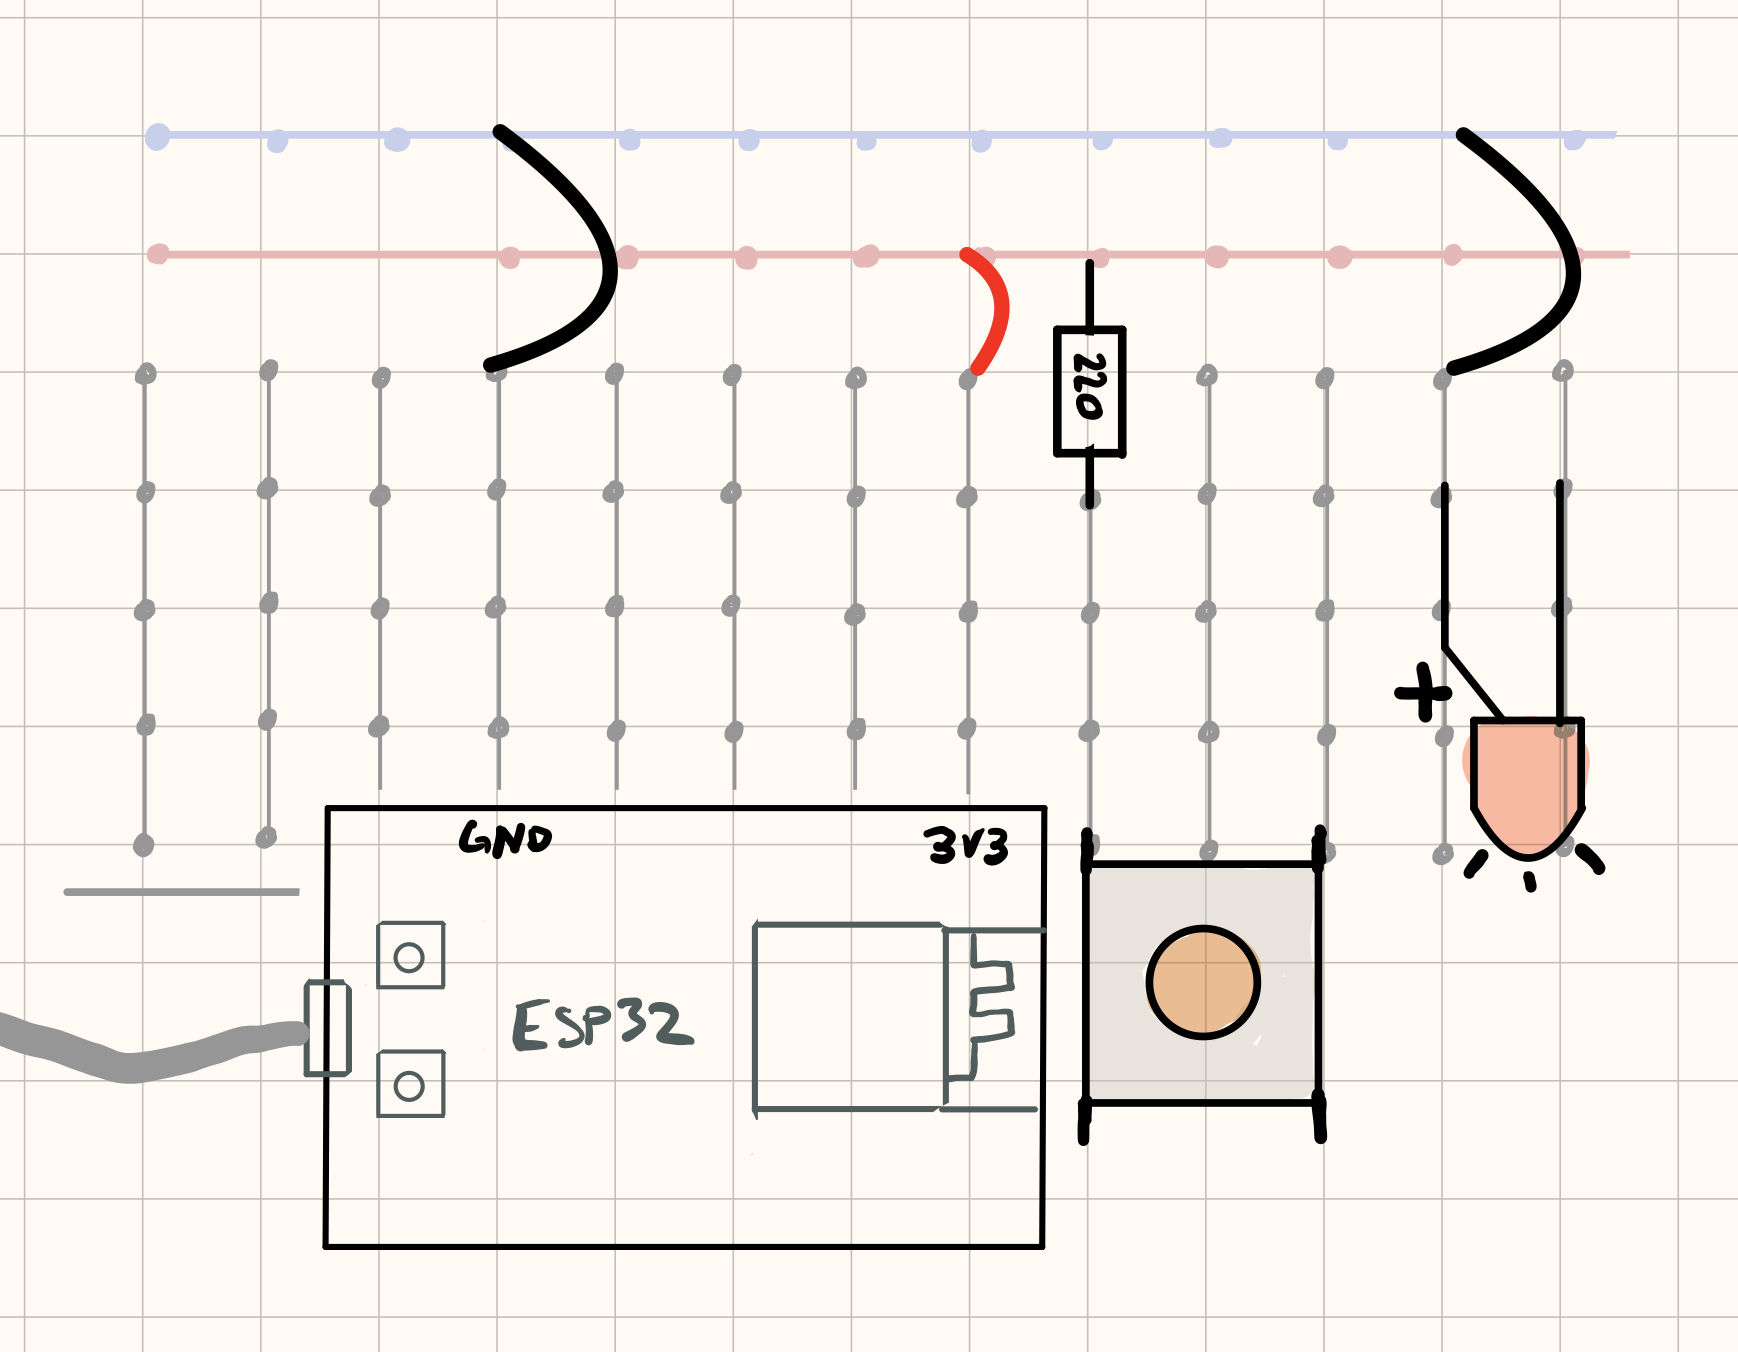 220
+
GND
3V3
ESP32